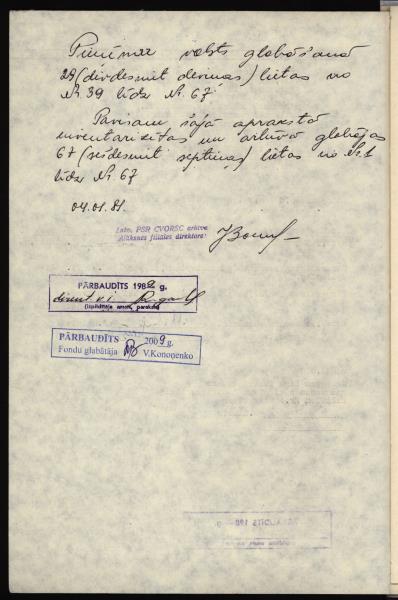 Pieņēmu valsts glabāšanā
29 (divdesmit deviņas) lietas no
Nr. 39 līdz Nr. 67
Pavisam šajā aprakstā
inventarizētas un arhīvā glabājas
67 (sešdesmit septiņas) lietas no Nr. 1
līdz Nr. 67
04.01.81.
Latv. PSR CVORSC arhīva
Alūksnes filiāles direktore:
PĀRBAUDĪTS 1982 g.
(izpildītāja amats, paraksts)
PĀRBAUDĪTS 2009 g.
Fondu glabātāja V.Kononenko